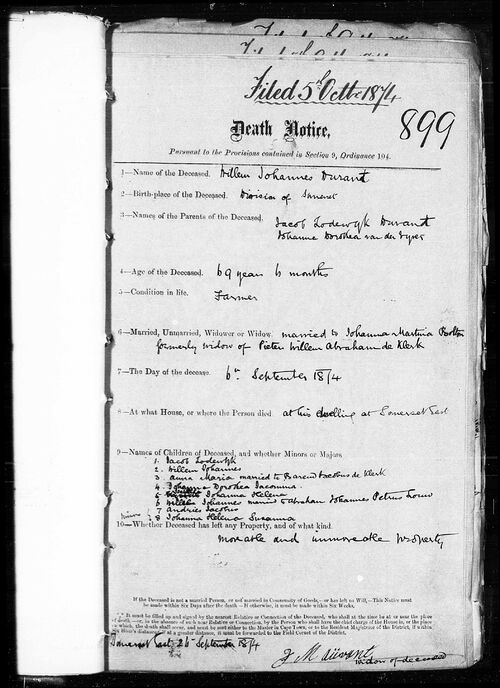 Filed 5th Octbr 1874
Death Notice,
899
Pursuant to the Provisions contained in Section 9, Ordinance 104.
1—Name of the Deceased. Willem Johannes Durand
2—Birth-place of the Deceased. Division of Somerset
3—Names of the Parents of the Deceased. Jacob Lodewyk Durand
Johanna Dorothea van der
4—Age of the Deceased. 69 years 6 months
5—Condition in life. Farmer
6—Married, Unmarried, Widower or Widow. married to Johanna Martina
formerly widow of Pieter Willem Abraham de Klerk
7—The Day of the decease. 6th September 1874
8—At what House, or where the Person died. at his dwelling at Somerset East
9—Names of Children of Deceased, and whether Minors or Majors
1. Jacob Lodewyk
2. Willem Johannes
3. Anna Maria married to Barend Jacobus de Klerk
4. Johanna Dorothea Jacomina
5 Johanna Helena
6 Johannes married to Abraham Johannes Petrus Louw
7 Andries Jacobus
minors 8 Johanna Helena Susanna
10—Whether Deceased has left any Property, and of what kind.
moveable and immoveable property
If the Deceased is not a married Person, or not married in Community of Goods,—or has left no Will,—This Notice must
be made within Six Days after the death—If otherwise, it must be made within Six Weeks.
It must be filled up and signed by the nearest Relative or Connection of the Deceased, who shall at the time be at or near the place
of death,—or, in the absence of such near Relative or Connection, by the Person who shall have the chief charge of the House in, or the place
on which, the death shall occur, and must be sent either to the Master in Cape Town, or to the Resident Magistrate of the District, if within
Hour's distance at a greater distance, it must be forwarded to the Field Cornet of the District.
Somerset East, 26 September 1874
J M Durand
widow of deceased